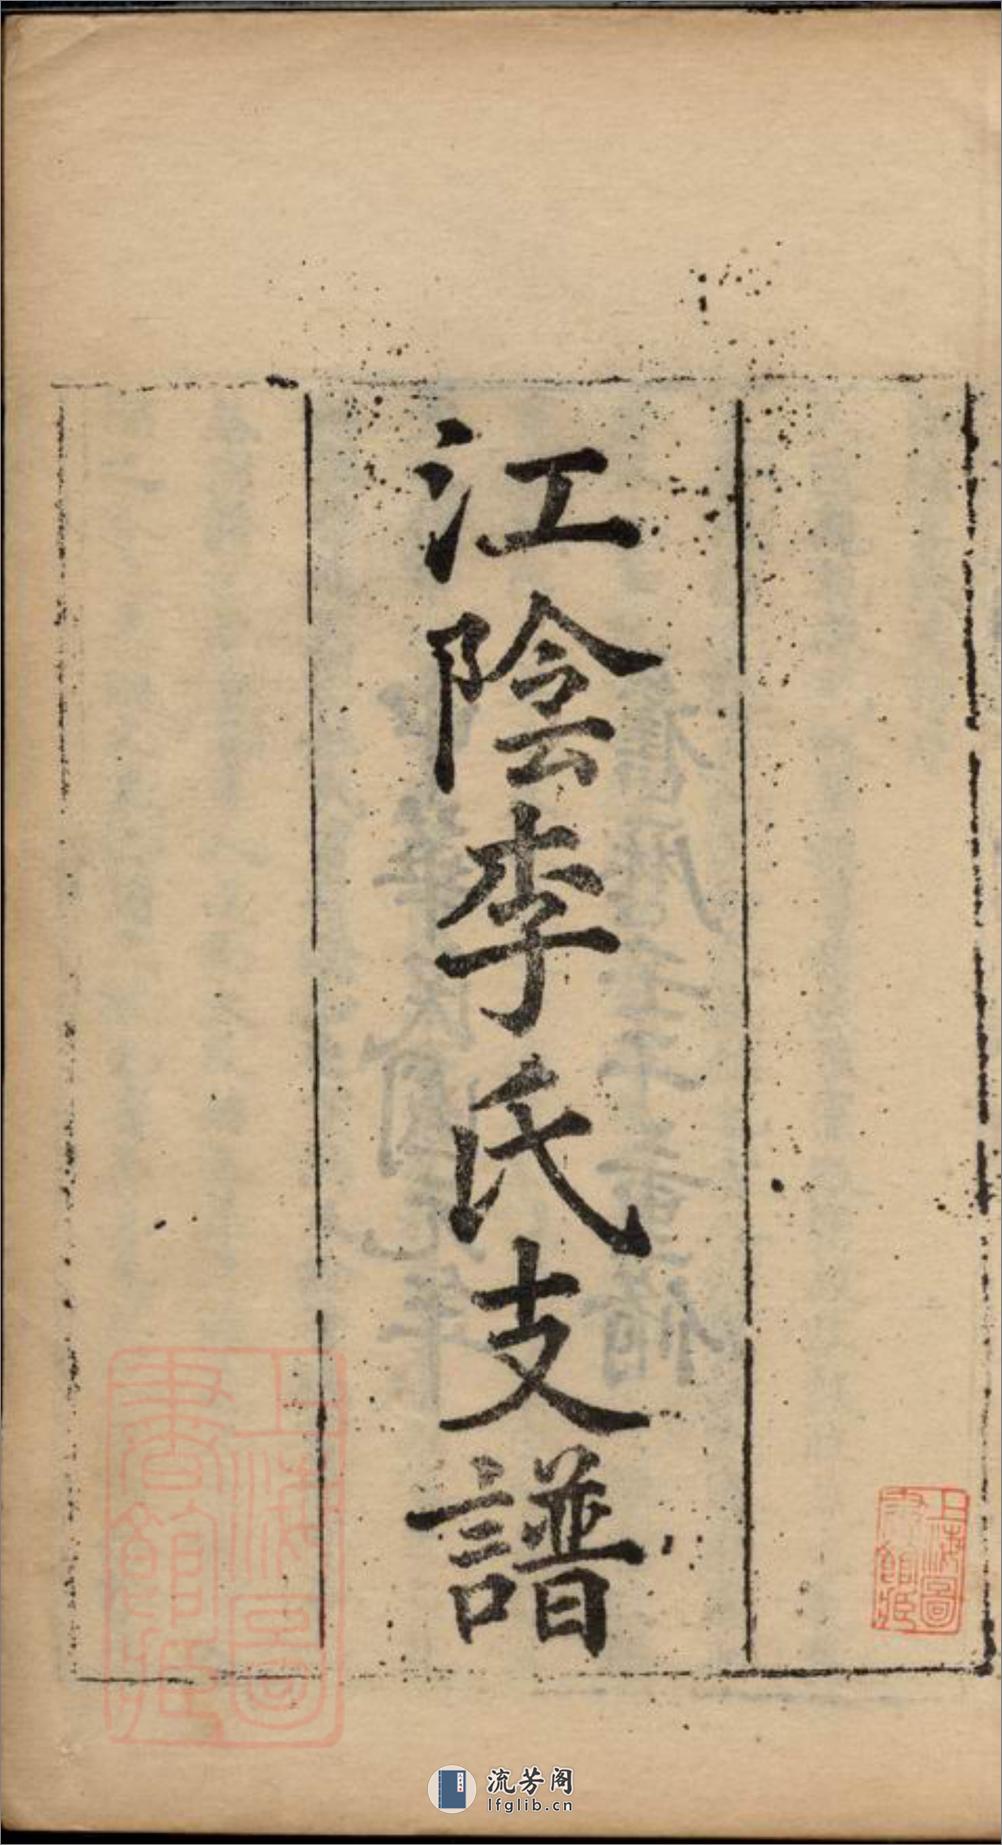 江陰李氏支譜
上海圖
書館藏
上海圖
書館藏
流芳阁
lfglib.cn